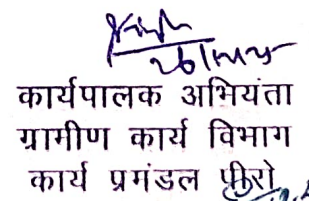 कार्यपालक अभियंता
ग्रामीण कार्य विभाग
कार्य प्रमंडल पीरो